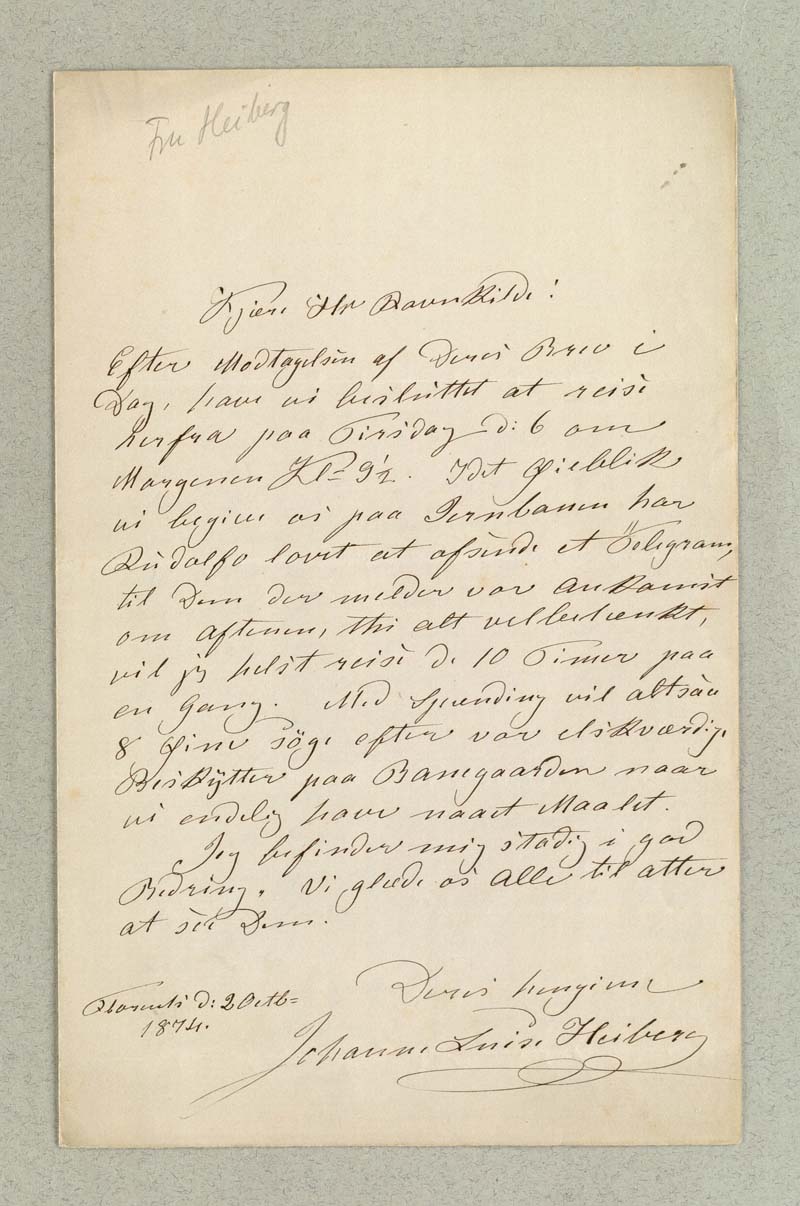 Fru Heiberg
Kjære Hr Ravnkilde!
Efter Modtagelsen af Deres Brev i
Dag, have vi besluttet at reise
herfra paa Tirsdag d: 6 om
Morgenen Kl= 9½. Idet Øieblik
vi begive os paa Jernbanen har
Rudolfo lovet at afsende et Telegram,
til Dem der melder vor Ankomst
om Aftenen, thi alt velbetænkt,
vil jeg helst reise de 10 Timer paa
en Gang. Med Spænding vil altsaa
8 Øine søge efter vor elskværdige
Beskytter paa Banegaarden naar
vi endelig have naaet Maalet.
Jeg befinder mig stadig i god
Bedring. Vi glæde os alle til atter
at see Dem.
Deres hengivne
Florents d: 2 Octb=
1874.
Johanne Luise Heiberg